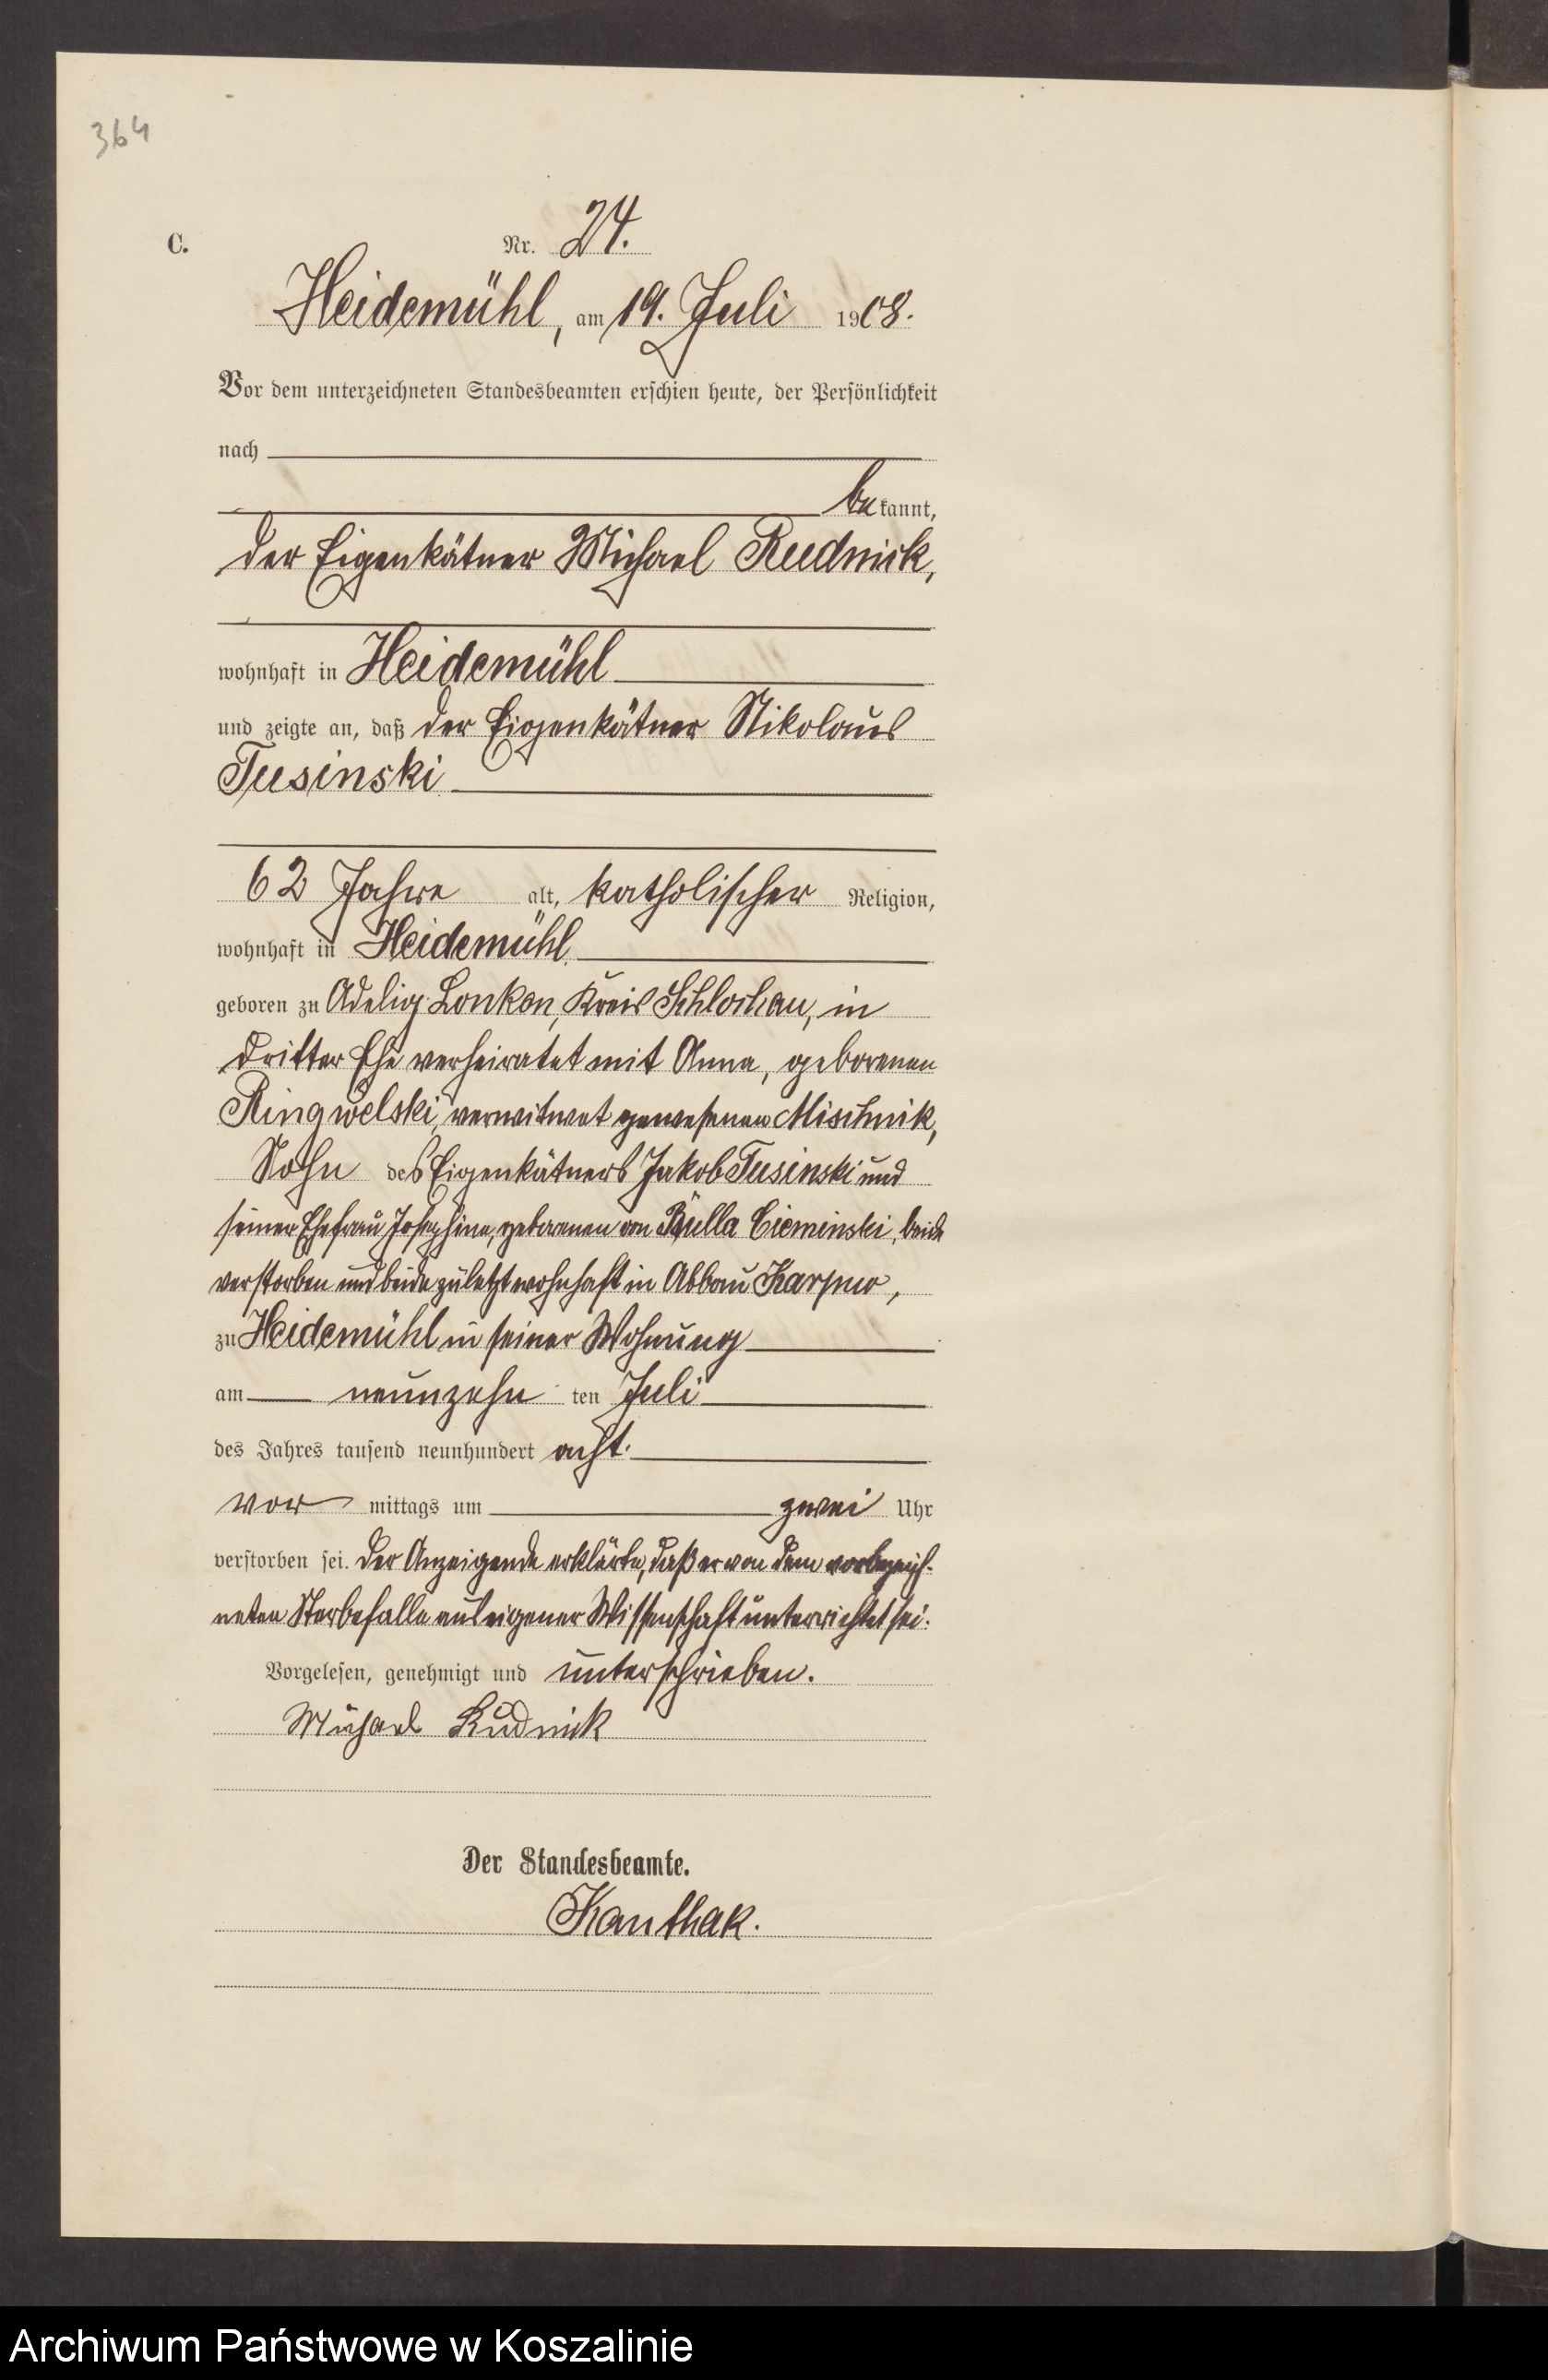 364
C.
Nr. 24.
Heidemühl, am 19. Juli 1908.
Vor dem unterzeichneten Standesbeamten erschien heute, der Persönlichkeit
nach
bekannt,
der Eigenkätner Michael Rudnick,
wohnhaft in Heidemühl
und zeigte an, daß der Eigenkätner Nikolaus
Tusinski
62 Jahre alt, katholischer Religion,
wohnhaft in Heidemühl
geboren zu Adelig Lonken, Kreis Schlochau, in
dritter Ehe verheiratet mit Anna, geborenen
Ringwelski, verwitwet gewesenen Mischnik,
Sohn des Eigenkätners Jakob Tusinski und
seiner Ehefrau Josephine, geborenen von Kulla Cieminski, beide
verstorben und beide zuletzt wohnhaft in Abbau Karpno,
zu Heidemühl in seiner Wohnung
am neunzehn ten Juli
des Jahres tausend neunhundert acht
vor mittags um zwei Uhr
verstorben sei. Der Anzeigende erklärte, daß er von dem vorbezeich-
neten Sterbefalle aus eigener Wissenschaft unterrichtet sei.
Vorgelesen, genehmigt und unterschrieben.
Michael Rudnick
Der Standesbeamte.
Kanthak.
Archiwum Państwowe w Koszalinie